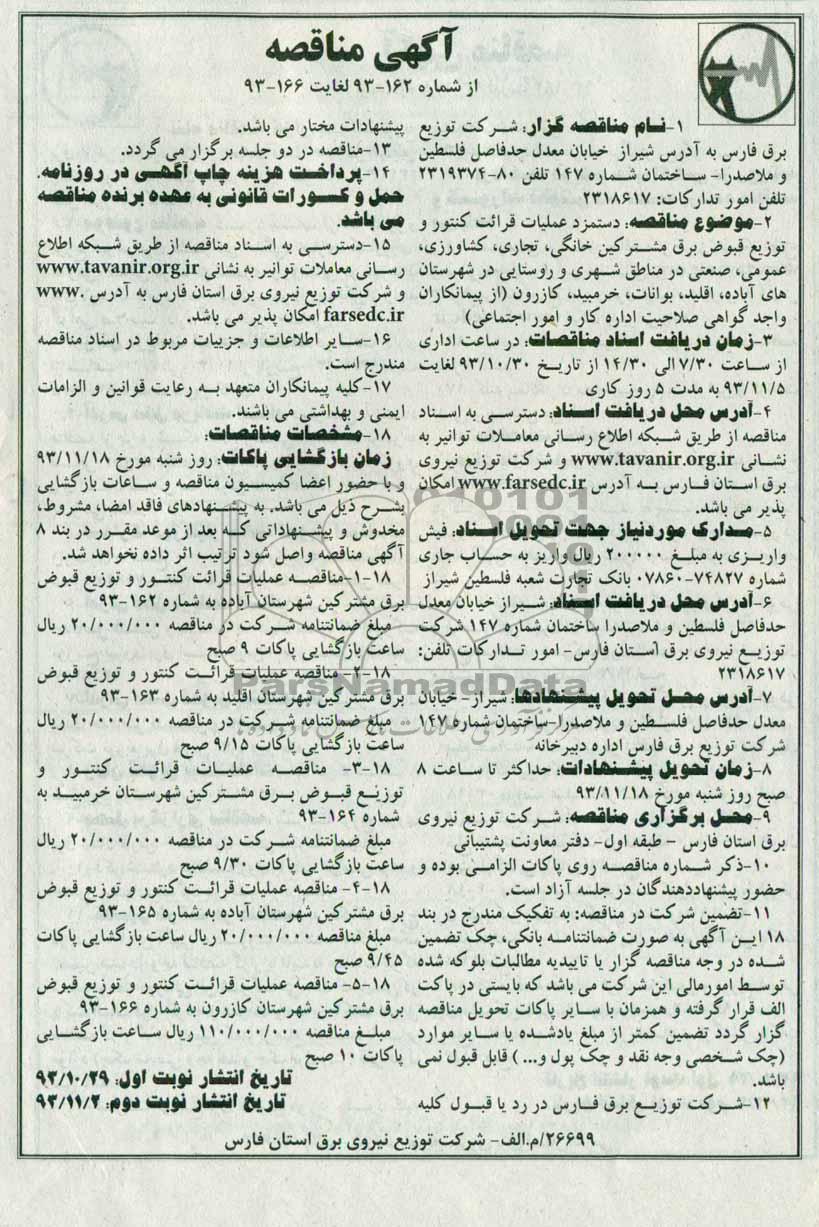 آگهی مناقصه
از شماره ۱۶۲-۹۳ لغایت ۱۶۶-۹۳
۱-نـام مناقصه گزار: شرکت توزیع
برق فارس به آدرس شیراز خیابان معدل حدفاصل فلسطین
و ملاصدرا- ساختمان شماره ۱۴۷ تلفن ۸۰-۲۳۱۹۳۷۴
تلفن امور تدارکات: ۲۳۱۸۶۱۷
۲-موضوع مناقصه: دستمزد عملیات قرائت کنتور و
توزیع قبوض برق مشترکین خانگی، تجاری، کشاورزی،
عمومی، صنعتی در مناطق شهری و روستایی در شهرستان
های آباده، اقلید، بوانات، خرمبید، کازرون (از پیمانکاران
واجد گواهی صلاحیت اداره کار و امور اجتماعی)
۳-زمان دریافت اسناد مناقصات: در ساعت اداری
از ساعت ۷/۳۰ الی ۱۴/۳۰ از تاریخ ۹۳/۱۰/۳۰ لغایت
۹۳/۱۱/۵ به مدت ۵ روز کاری
۴-آدرس محل دریافت اسناد: دسترسی به اسناد
مناقصه از طریق شبکه اطلاع رسانی معاملات توانیر به
نشانی www.tavanir.org.ir و شرکت توزیع نیروی
برق استان فارس به آدرس www.farsedc.ir امکان
پذیر می باشد.
۵-مدارک موردنیاز جهت تحویل اسناد: فیش
واریزی به مبلغ ۲۰۰۰۰۰ ریال واریز به حساب جاری
شماره ۷۴۸۲۷-۰۷۸۶۰ بانک تجارت شعبه فلسطین شیراز
۶-آدرس محل دریافت اسناد: شیراز خیابان معدل
حدفاصل فلسطین و ملاصدرا ساختمان شماره ۱۴۷ شرکت
توزیع نیروی برق استان فارس- امور تدارکات تلفن:
۲۳۱۸۶۱۷
۷-آدرس محل تحویل پیشنهادها: شیراز- خیابان
معدل حدفاصل فلسطین و ملاصدرا-ساختمان شماره ۱۴۷
شرکت توزیع برق فارس اداره دبیرخانه
۸-زمان تحویل پیشنهادات: حداکثر تا ساعت ۸
صبح روز شنبه مورخ ۹۳/۱۱/۱۸
۹-محل برگزاری مناقصه: شرکت توزیع نیروی
برق استان فارس - طبقه اول- دفتر معاونت پشتیبانی
۱۰-ذکر شماره مناقصه روی پاکات الزامی بوده و
حضور پیشنهاددهندگان در جلسه آزاد است.
۱۱-تضمین شرکت در مناقصه: به تفکیک مندرج در بند
۱۸ این آگهی به صورت ضمانتنامه بانکی، چک تضمین
شده در وجه مناقصه گزار یا تاییدیه مطالبات بلوکه شده
توسط امورمالی این شرکت می باشد که بایستی در پاکت
الف قرار گرفته و همزمان با سایر پاکات تحویل مناقصه
گزار گردد تضمین کمتر از مبلغ یادشده یا سایر موارد
(چک شخصی وجه نقد و چک پول و... ) قابل قبول نمی
باشد.
۱۲-شرکت توزیع برق فارس در رد یا قبول کلیه
پیشنهادات مختار می باشد.
۱۳-مناقصه در دو جلسه برگزار می گردد.
۱۴-پرداخت هزینه چاپ آگهی در روزنامه،
حمل و کسورات قانونی به عهده برنده مناقصه
می باشد.
۱۵-دسترسی به اسناد مناقصه از طریق شبکه اطلاع
رسانی معاملات توانیر به نشانی www.tavanir.org.ir
و شرکت توزیع نیروی برق استان فارس به آدرس www.
farsedc.ir امکان پذیر می باشد.
۱۶-سایر اطلاعات و جزییات مربوط در اسناد مناقصه
مندرج است.
۱۷-کلیه پیمانکاران متعهد به رعایت قوانین و الزامات
ایمنی و بهداشتی می باشند.
۱۸-مشخصات مناقصات:
زمان بازگشایی پاکات: روز شنبه مورخ ۹۳/۱۱/۱۸
و با حضور اعضا کمیسیون مناقصه و ساعات بازگشایی
بشرح ذیل می باشد. به پیشنهادهای فاقد امضا، مشروط،
مخدوش و پیشنهاداتی که بعد از موعد مقرر در بند ۸
آگهی مناقصه واصل شود ترتیب اثر داده نخواهد شد.
۱۸-۱-مناقصه عملیات قرائت کنتور و توزیع قبوض
برق مشترکین شهرستان آباده به شماره ۱۶۲-۹۳
مبلغ ضمانتنامه شرکت در مناقصه ۲۰/۰۰۰/۰۰۰ ریال
ساعت بازگشایی پاکات ۹ صبح
۱۸-۲- مناقصه عملیات قرائت کنتور و توزیع قبوض
برق مشترکین شهرستان اقلید به شماره ۱۶۳-۹۳
مبلغ ضمانتنامه شرکت در مناقصه ۲۰/۰۰۰/۰۰۰ ریال
ساعت بازگشایی پاکات ۹/۱۵ صبح
۱۸-۳- مناقصه عملیات قرائت کنتور و
توزیع قبوض برق مشترکین شهرستان خرمبید به
شماره ۱۶۴-۹۳
مبلغ ضمانتنامه شرکت در مناقصه ۲۰/۰۰۰/۰۰۰ ریال
ساعت بازگشایی پاکات ۹/۳۰ صبح
۱۸-۴- مناقصه عملیات قرائت کنتور و توزیع قبوض
برق مشترکین شهرستان آباده به شماره ۱۶۵-۹۳
مبلغ مناقصه ۲۰/۰۰۰/۰۰۰ ریال ساعت بازگشایی پاکات
۹/۴۵ صبح
۱۸-۵- مناقصه عملیات قرائت کنتور و توزیع قبوض
برق مشترکین شهرستان کازرون به شماره ۱۶۶-۹۳
مبلغ مناقصه ۱۱۰/۰۰۰/۰۰۰ ریال ساعت بازگشایی
پاکات ۱۰ صبح
تاریخ انتشار نوبت اول: ۹۳/۱۰/۲۹
تاریخ انتشار نوبت دوم: ۹۳/۱۱/۲
۲۶۶۹۹/م.الف- شرکت توزیع نیروی برق استان فارس
ParsNamadData